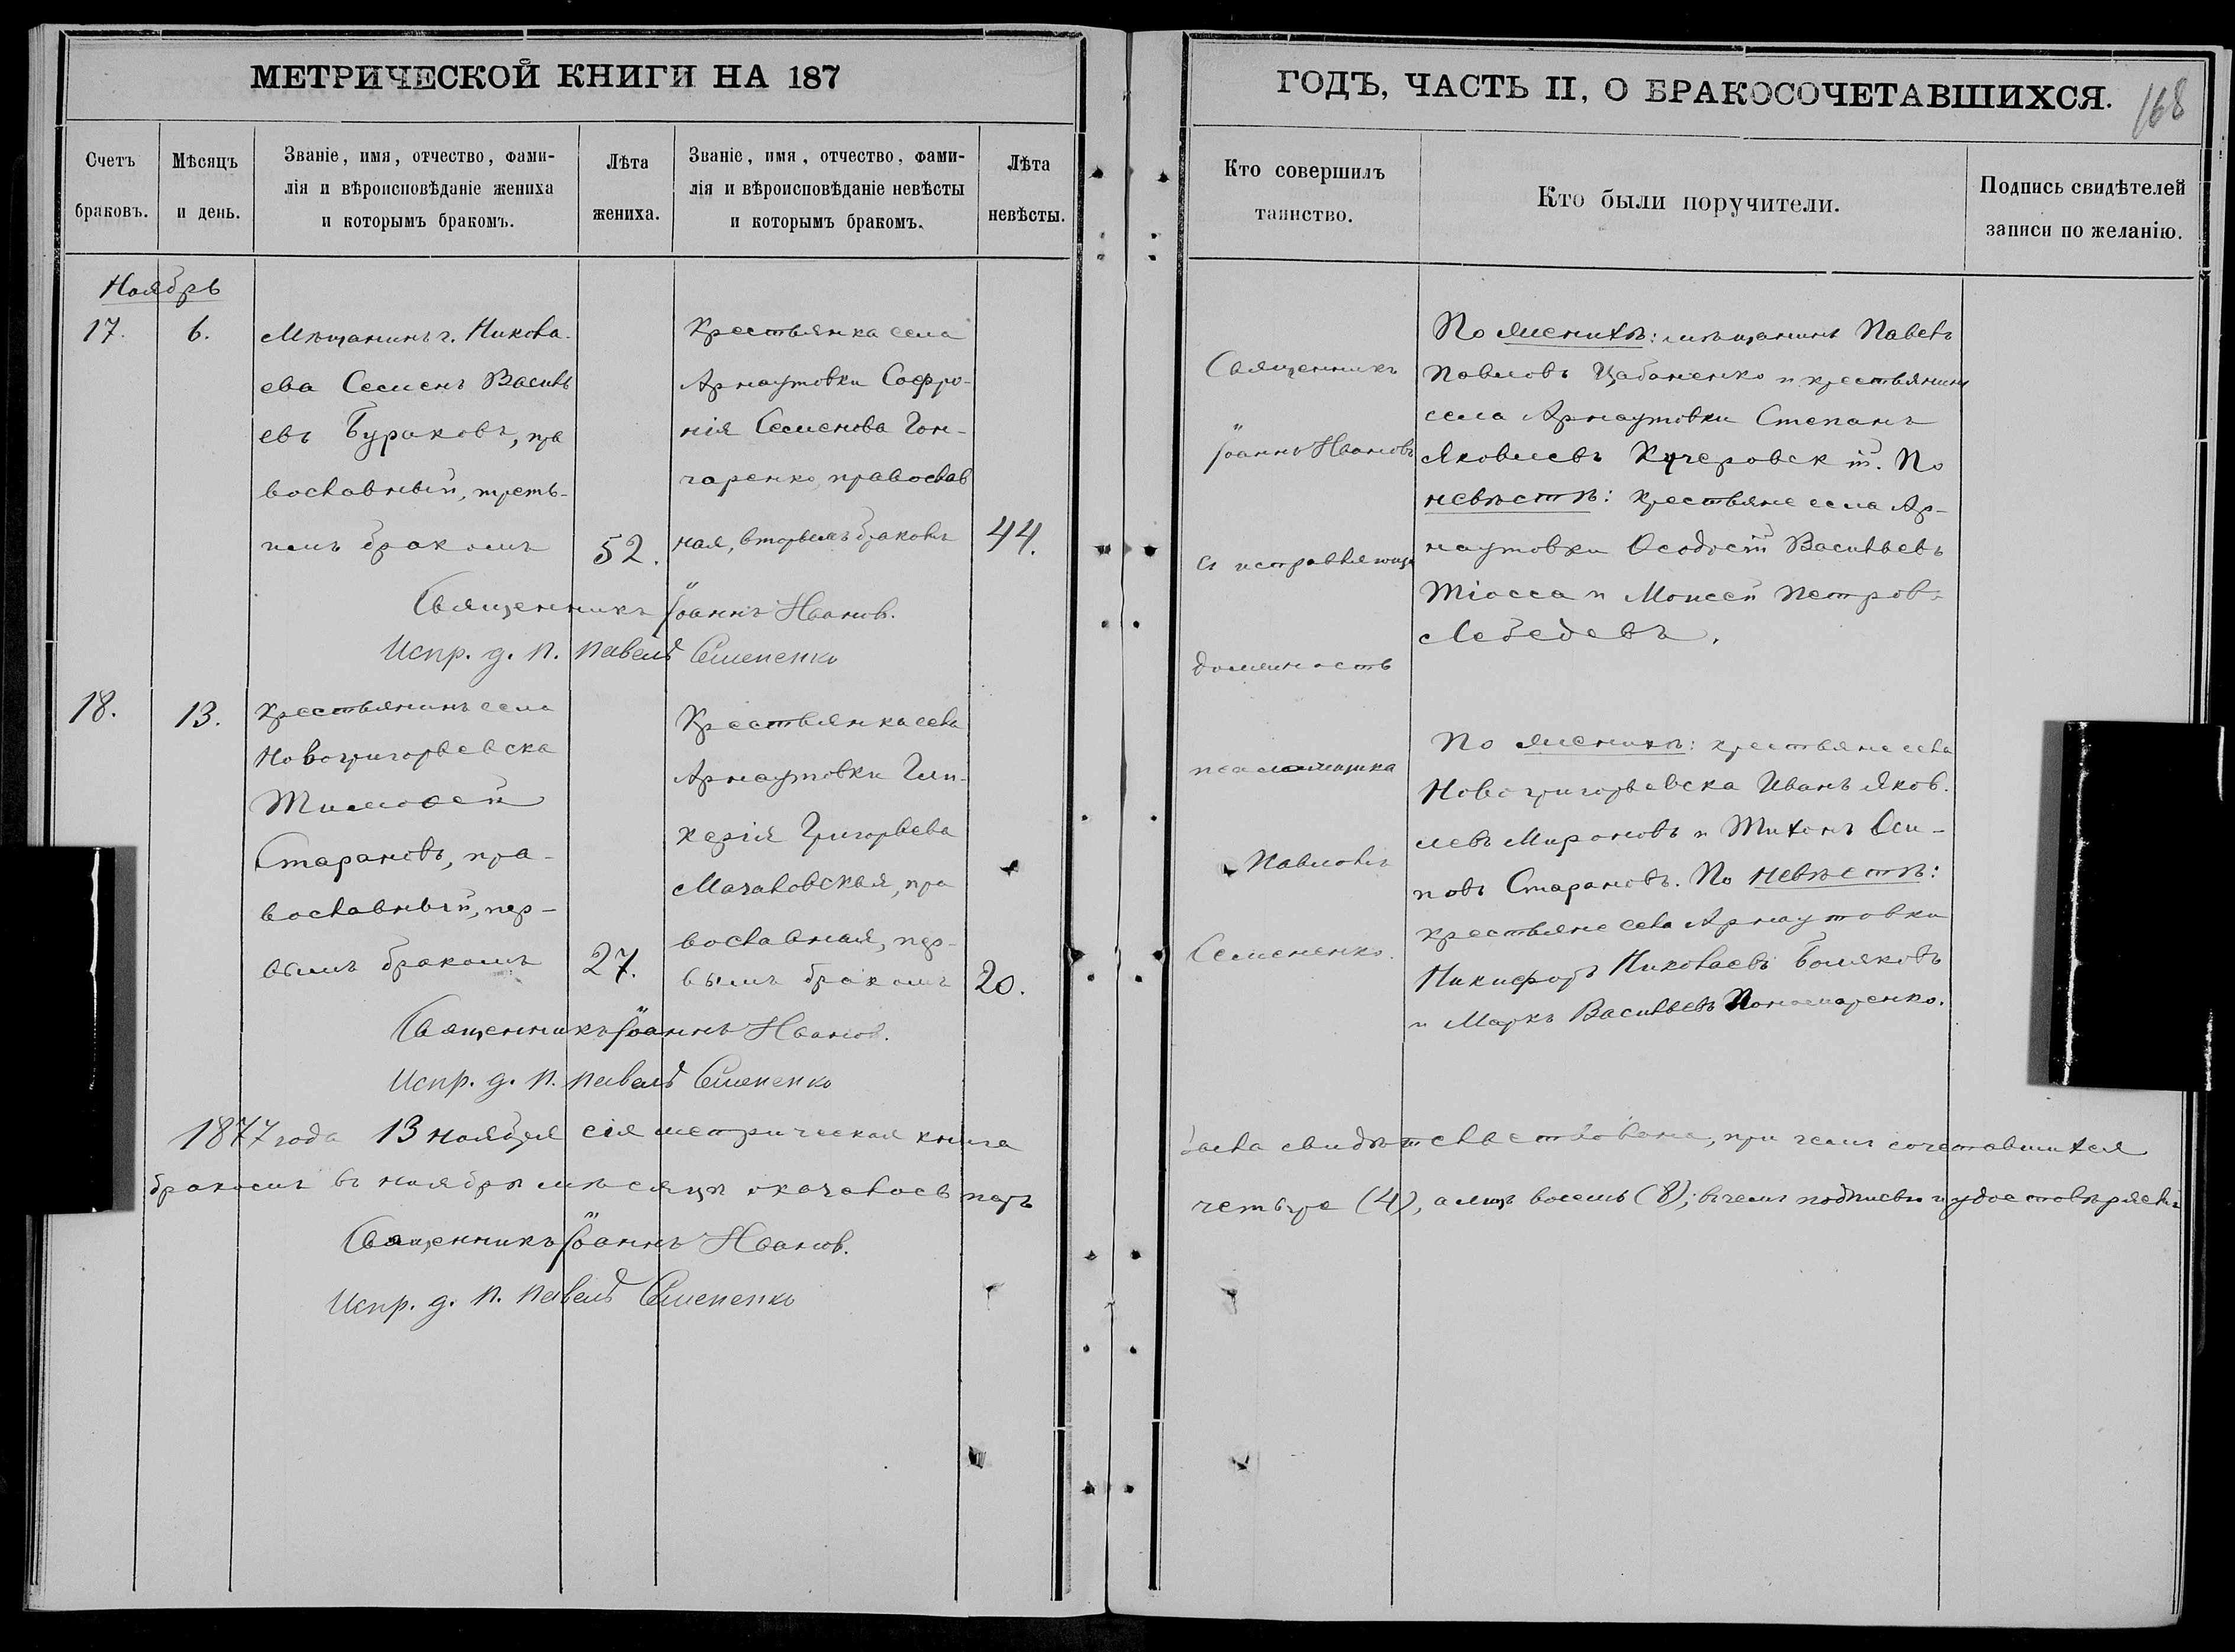 МЕТРИЧЕСКОЙ КНИГИ НА 187
Счетъ браковъ.
Мѣсяцъ и день.
Званіе, имя, отчество, фами-
лія и вѣроисповѣданіе жениха
и которымъ бракомъ.
Лѣта жениха.
Званіе, имя, отчество, фами-
лія и вѣроисповѣданіе невѣсты
и которымъ бракомъ.
Лѣта невѣсты.
Ноябрь
17. 6.
Мѣщанинъ г. Никола-
ева Семенъ Василь
евъ Бураковъ, пра
вославный, треть-
имъ бракомъ
52.
Крестьянка села
Арнаутовки Софро-
нія Семенова Гон-
чаренко, православ
ная, вторымъ бракомъ
44.
Священникъ Іоаннъ Иванов.
Испр. д. п. Павелъ Семененко
18. 13.
Крестьянинъ села
Новогригорьевска
Тимоѳей
Старановъ, пра-
вославный, пер-
вымъ бракомъ
27.
Крестьянка села
Арнаутовки Гли-
керія Григорьева
Мачаловская, пра
вославная, пер-
вымъ бракомъ
20.
Священникъ Іоаннъ Иванов.
Испр. д. п. Павелъ Семененко
1877 года 13 ноября сія метрическая книга
бракомъ въ ноябрѣ мѣсяцѣ оказалось паръ
Священникъ Іоаннъ Иванов.
Испр. д. п. Павелъ Семененко
ГОДЪ, ЧАСТЬ II, О БРАКОСОЧЕТАВШИХСЯ.
168
Кто совершилъ
таинство.
Кто были поручители.
Подпись свидѣтелей
записи по желанію.
Священникъ
Іоаннъ Ивановъ
съ исправляющ.
должность
псаломщика
Павломъ
Семененко.
По женихѣ: мѣщанинъ Павелъ
Павловъ Цабаненко и крестьянинъ
села Арнаутовки Степанъ
Яковлевъ Кучеровскій. По
невѣстѣ: крестьяне села Ар-
наутовки Ѳеодосій Васильевъ
Тіосса и Моисей Петровъ
Лебедевъ.
По женихѣ: крестьяне села
Новогригорьевска Иванъ Яков.
левъ Мироновъ и Тихонъ Оси-
повъ Старановъ. По невѣстѣ:
крестьяне села Арнаутовки
Никифоръ Николаевъ Боляковъ
и Маркъ Васильевъ Пономаренко.
была свидѣтельствована, при чемъ сочетавшихся
четыре (4), а лицъ восемь (8); въ чемъ подписью и удостовѣряемъ